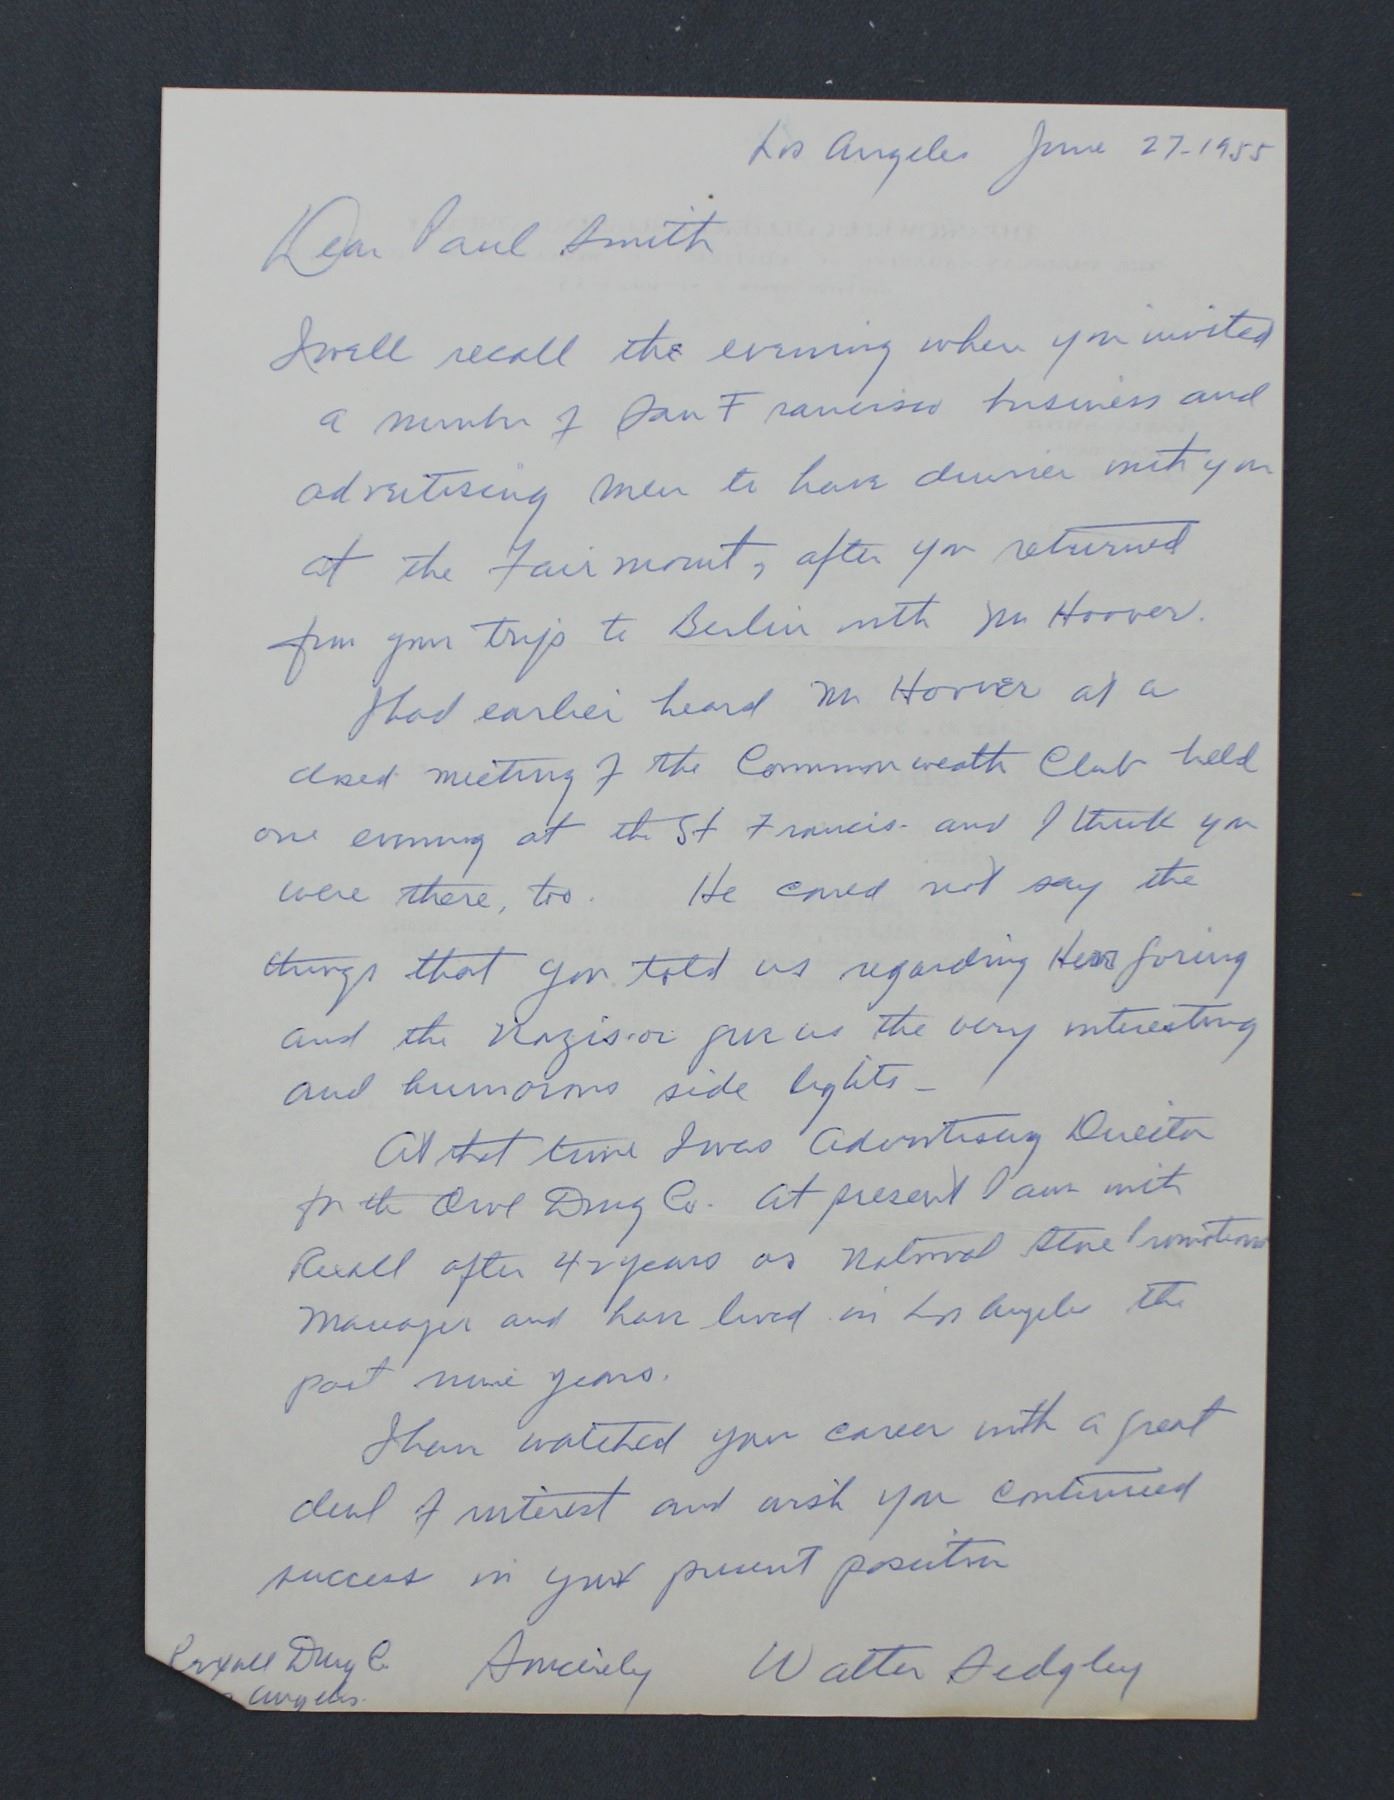 Los Angeles June 27-1955
Dear Paul Smith
I well recall the evening when you invited
a number of San Francisco business and
advertising men to have dinner with you
at the Fairmount, after you returned
from your trip to Berlin with Mr Hoover.
I had earlier heard Mr Hoover at a
closed meeting of the Commonwealth Club held
one evening at the St Francis - and I think you
were there, too. He could not say the
things that you told us regarding Herr Goring
and the Nazis - or give us the very interesting
and humorous side lights -
At that time I was Advertising Director
for the Owl Drug Co. At present I am with
Rexall after 42 years as National Store Promotions
Manager and have lived in Los Angeles the
past nine years.
I have watched your career with a great
deal of interest and wish you continued
success in your present position
Sincerely Walter Sedgley
Rexall Drug Co.
Angeles.